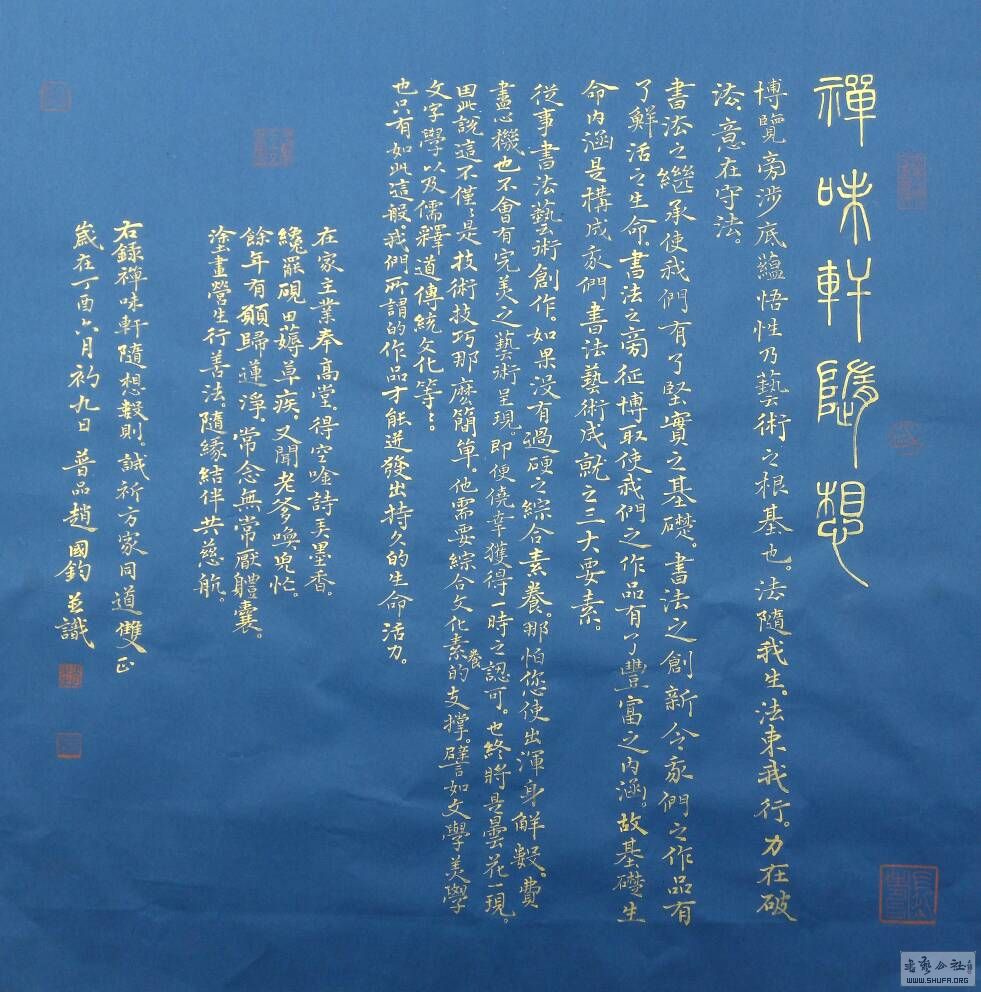 禪味軒隨想
博覽旁涉底蘊悟性乃藝術之根基也。法隨我生。法束我行。力在破
法、意在守法。
書法之繼承使我們有了堅實之基礎。書法之創新令我們之作品有
了鮮活之生命。書法之旁征博取使我們之作品有了豐富之內涵。故基礎生
命內涵是構成我們書法藝術成就之三大要素。
從事書法藝術創作。如果沒有過硬之綜合素養。那怕您使出渾身解數。費
盡心機也不會有完美之藝術呈現。即便僥幸獲得一時之認可。也終將是曇花一現。
因此說這不僅僅是技術技巧那麽簡單。他需要綜合文化素養的支撐。譬如文學美學
文字學以及儒釋道傳統文化等…
也只有如此這般。我們所謂的作品才能迸發出持久的生命活力。
在家主業奉高堂。得空唫詩弄墨香。
纔罷硯田薅草疾。又聞老爹喚兒忙。
餘年有願歸蓮淨。常念無常厭軆囊。
塗畫營生行善法。隨緣結伴共慈航。
右錄禪味軒隨想數則。誠祈方家同道雙正
歲在丁酉六月初九日 普品趙國鈞並識
书艺公社
WWW.SHUFA.ORG